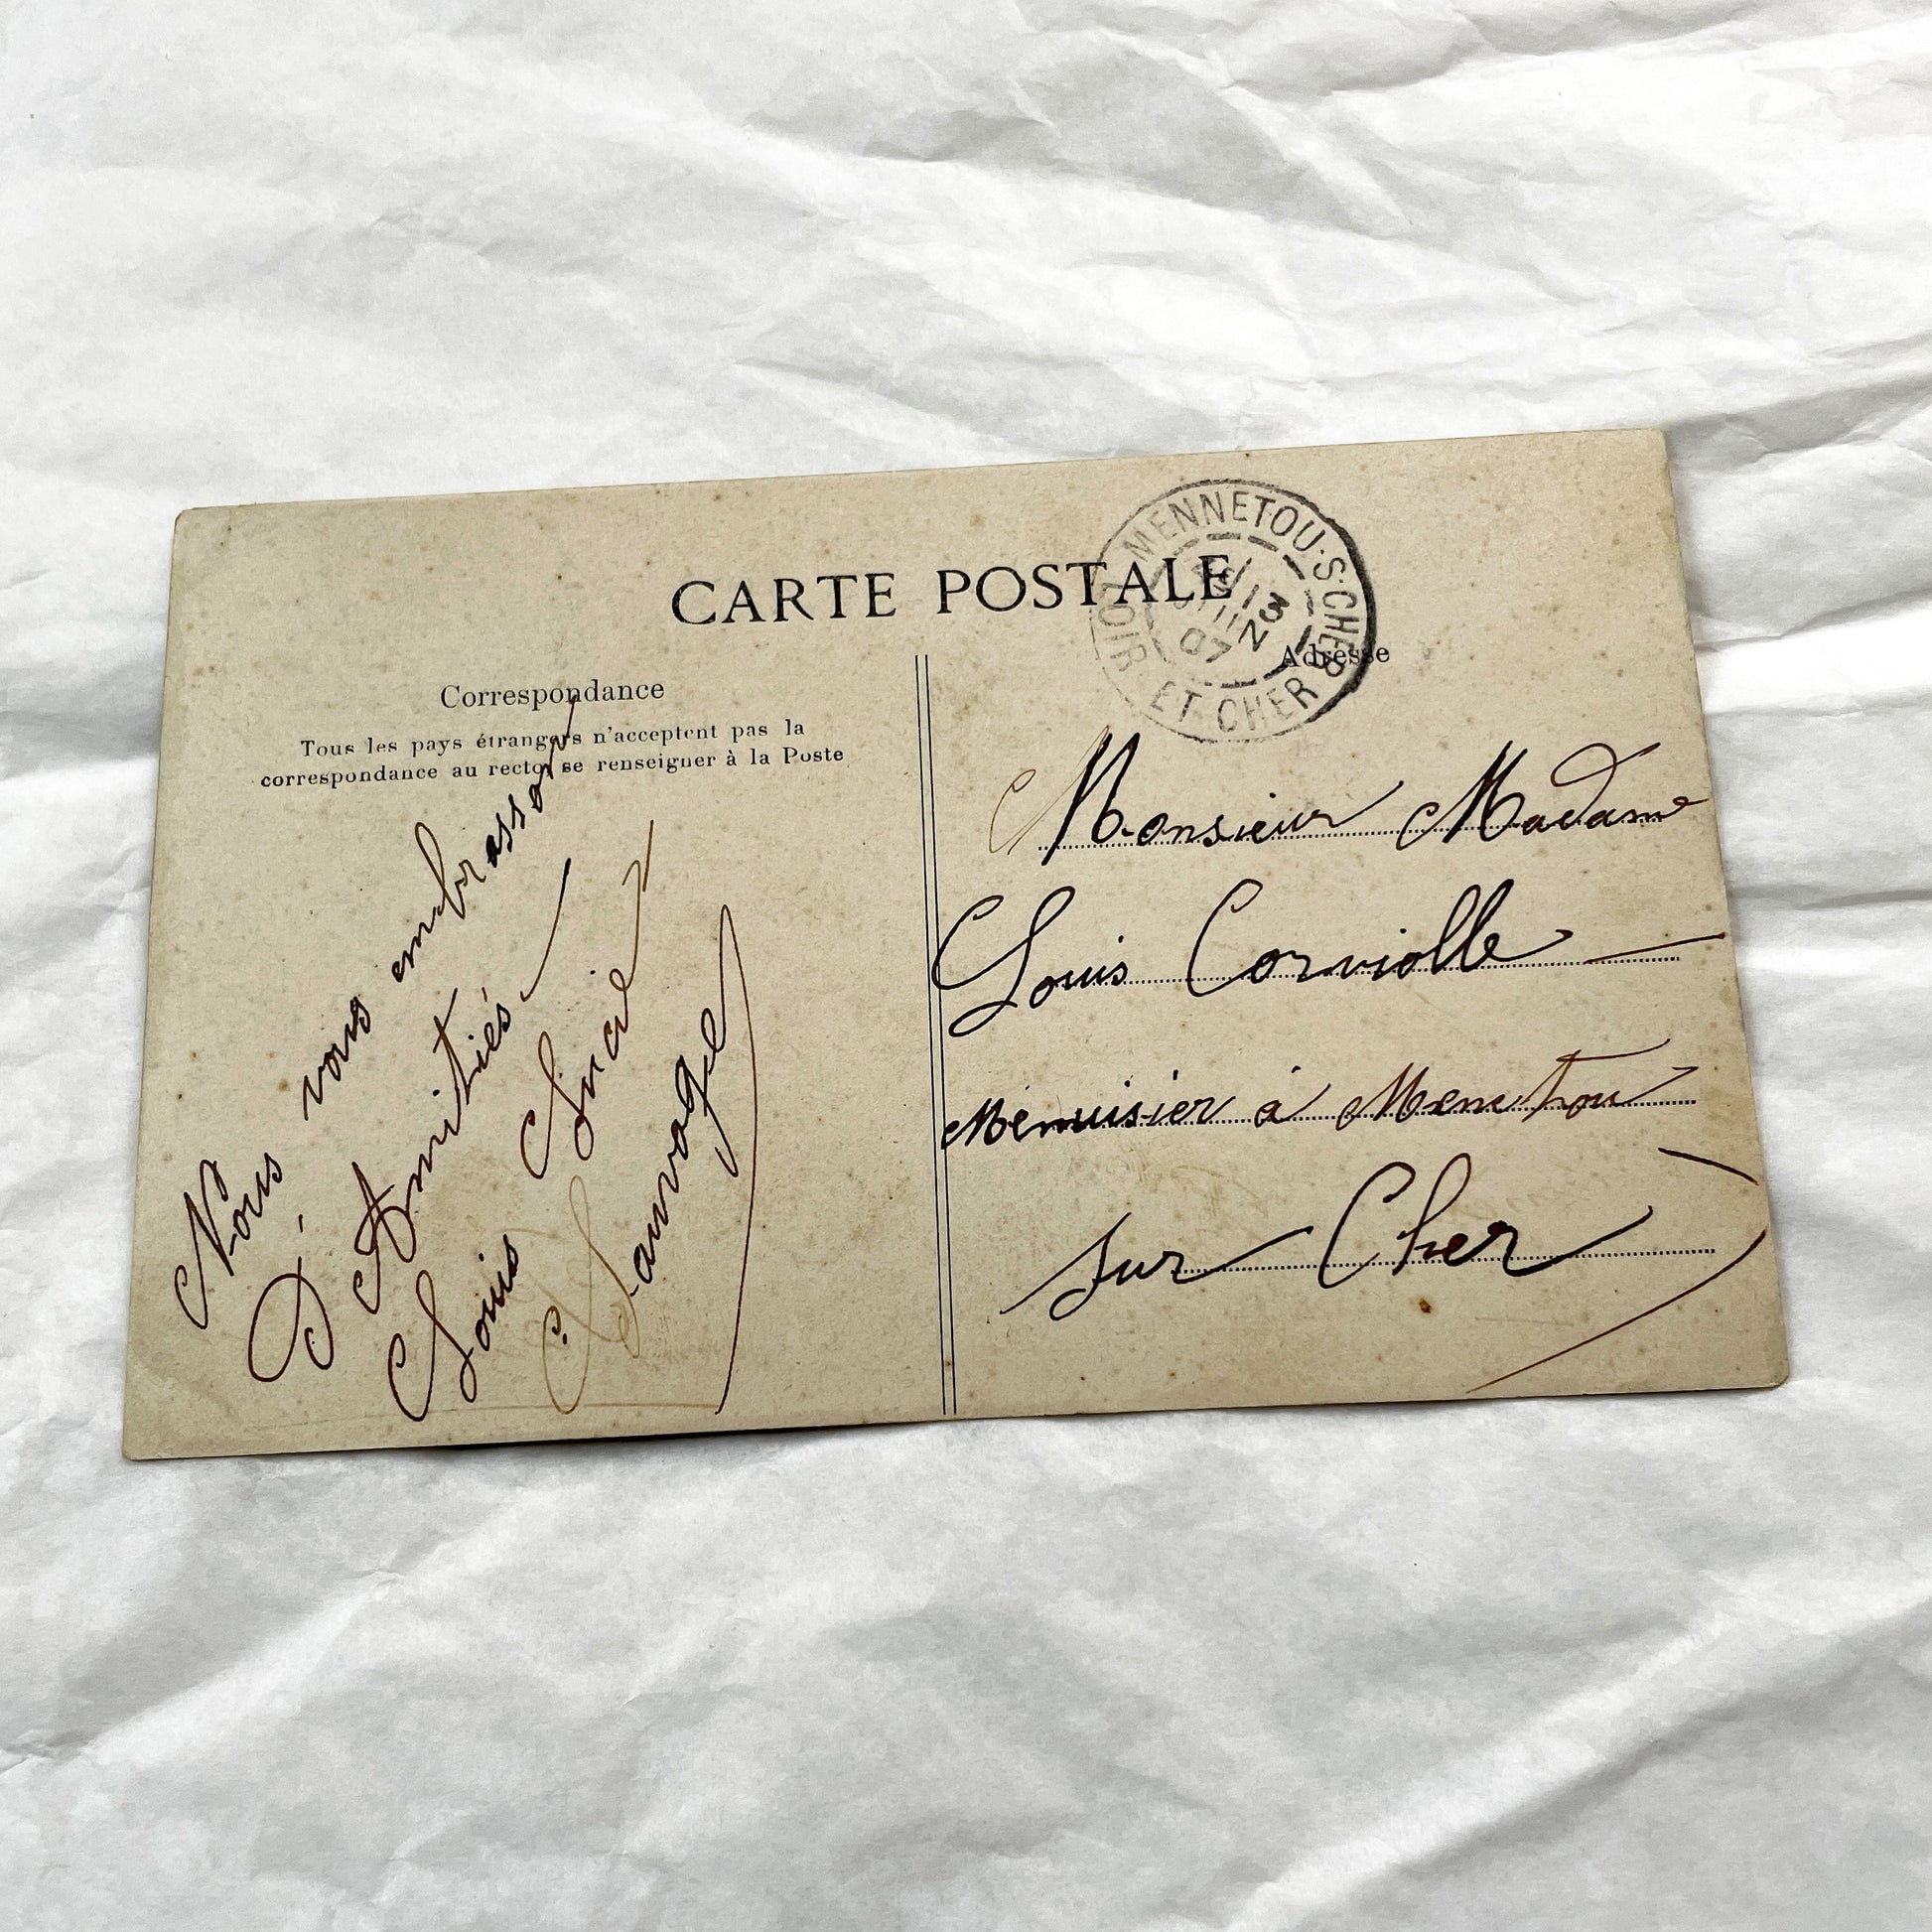 CARTE POSTALE
MENNETOU-S-CHER
LOIR ET CHER
13
07
Correspondance
Tous les pays étrangers n'acceptent pas la
correspondance au recto, se renseigner à la Poste
Nous vous embrassons
D'Amitiés
Louis
Sauvage
Adresse
Monsieur Madame
Louis Corviolle
Menuisier à Menetou
sur Cher